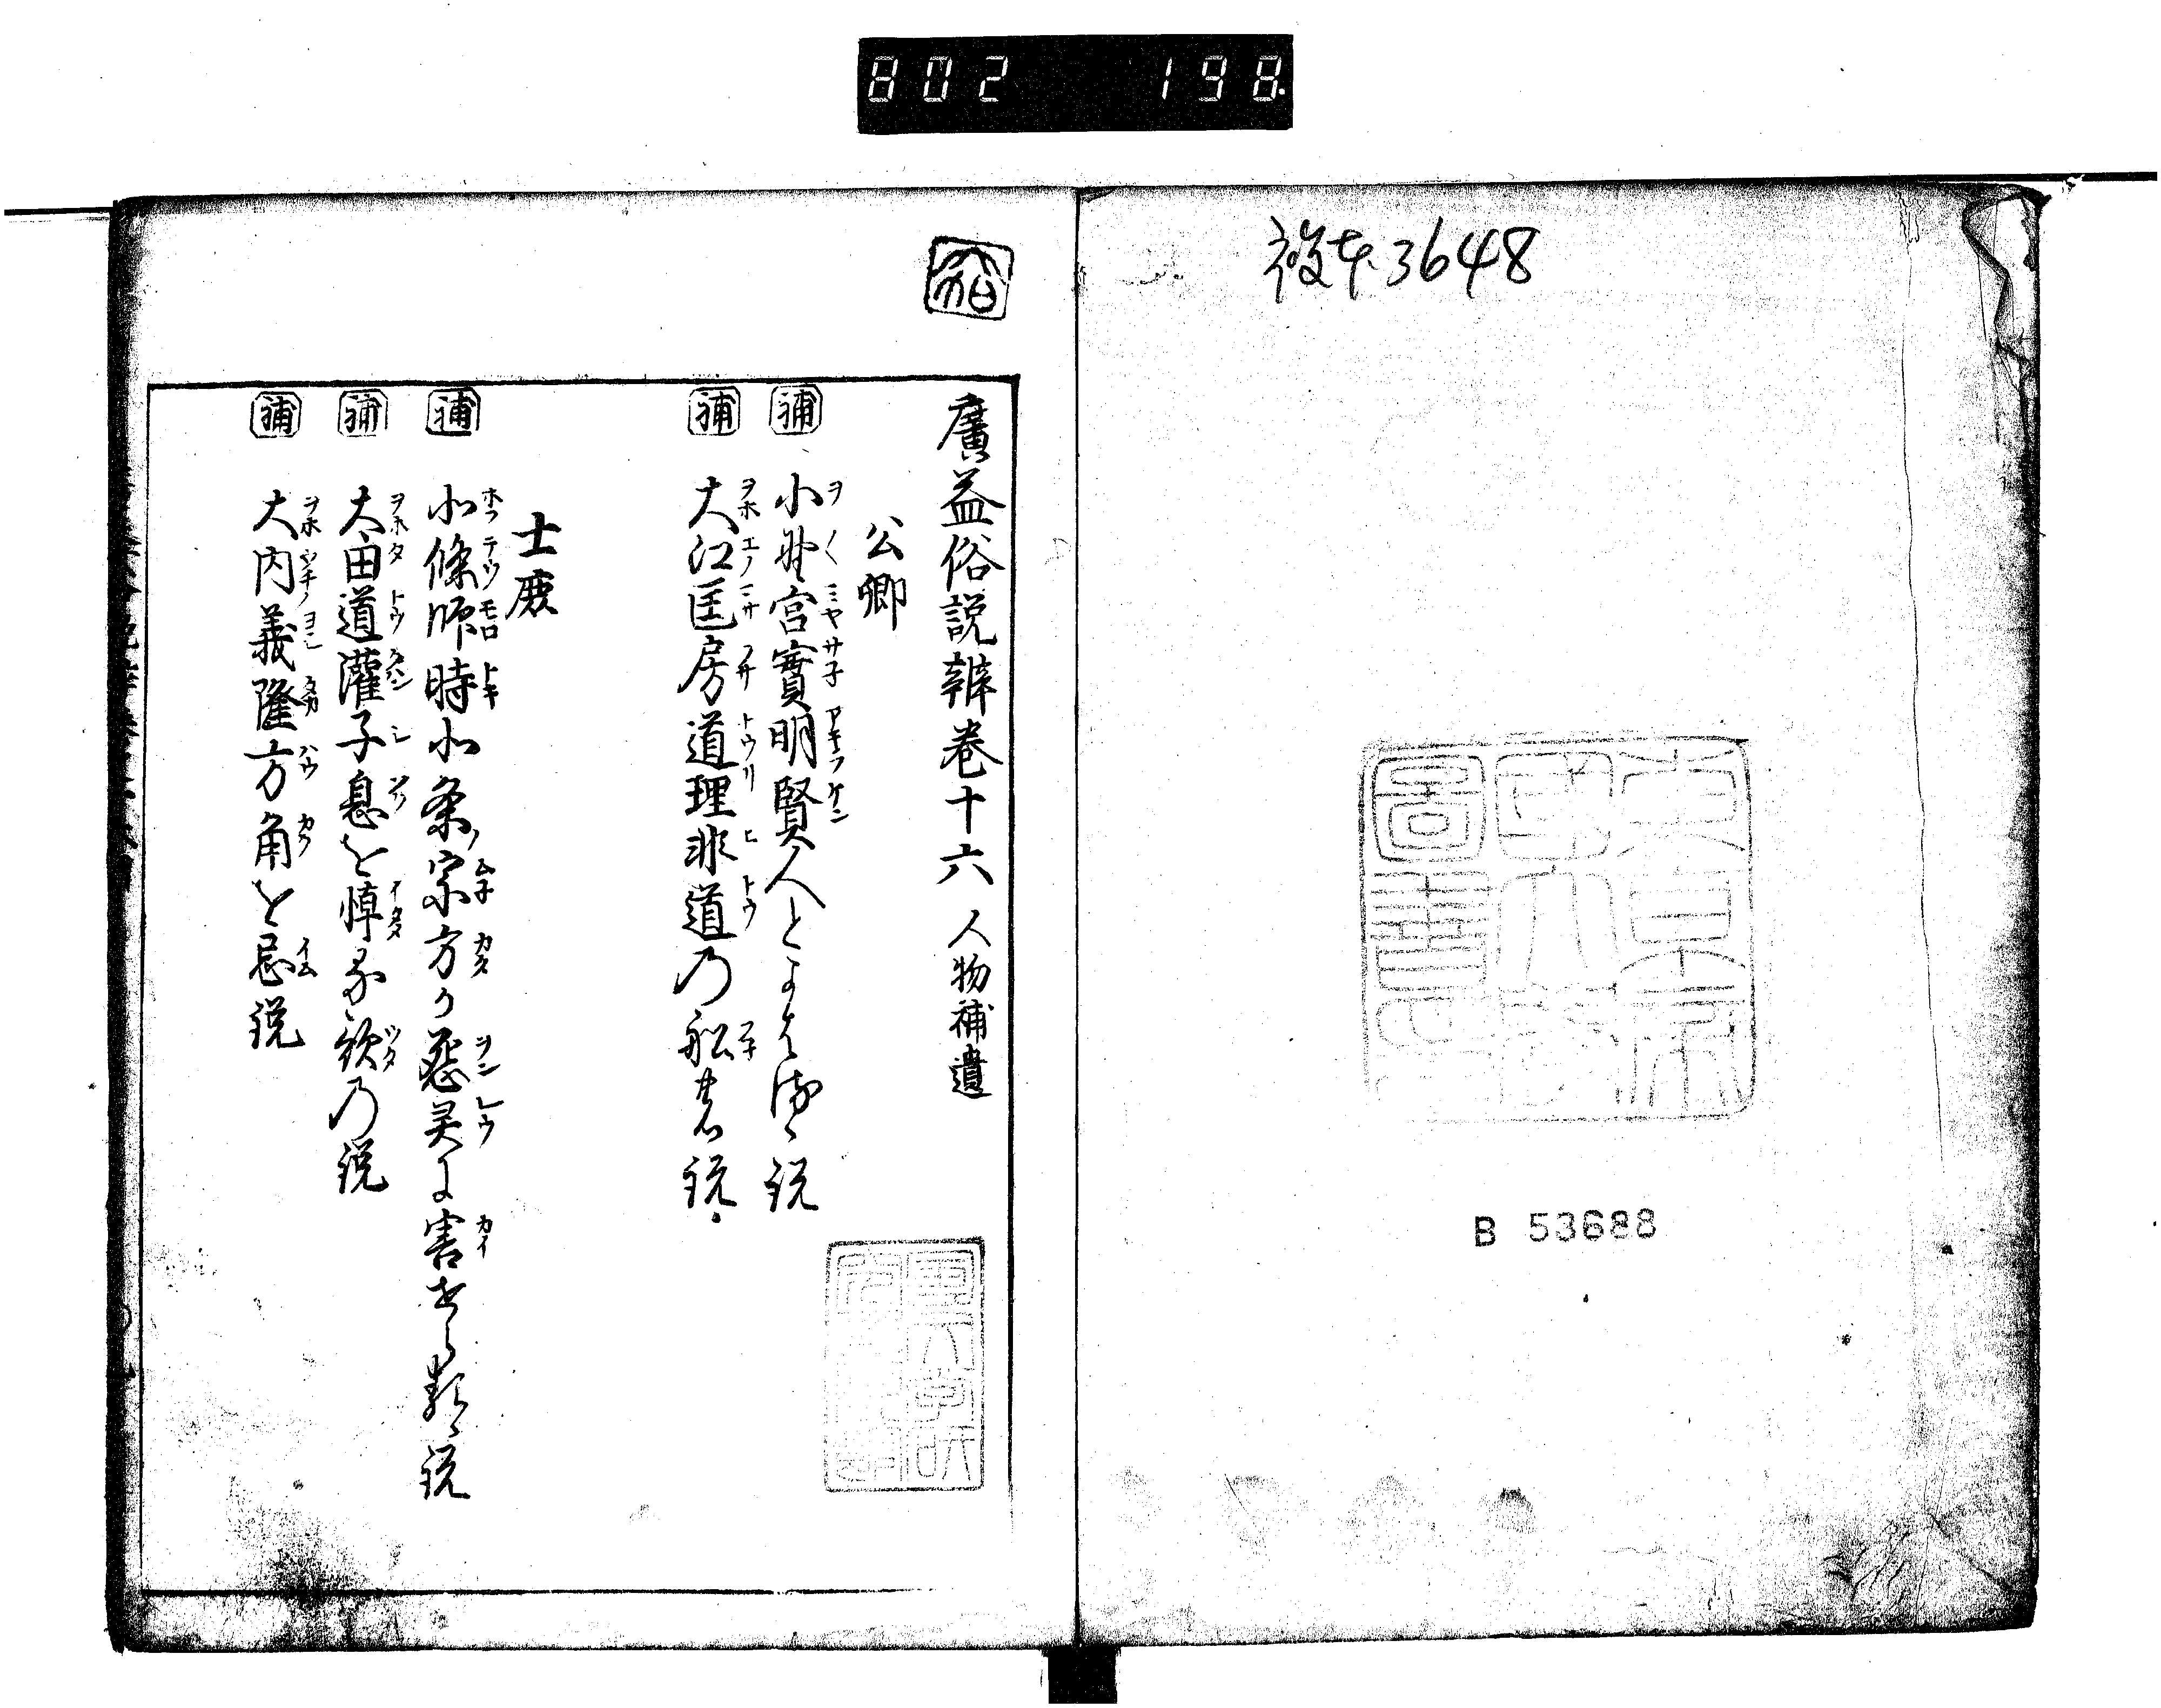 802 198
複本3648
B 53688
廣益俗説辨卷十六 人物補遺
公卿
補 小野宮實明賢人とよばるゝ説
補 大江匡房道理非道乃舩の説
士庶
補 北條師時北条宗方が怨灵に害せらるゝ説
補 太田道灌子息を悼る歌乃説
補 大内義隆方角を忌説